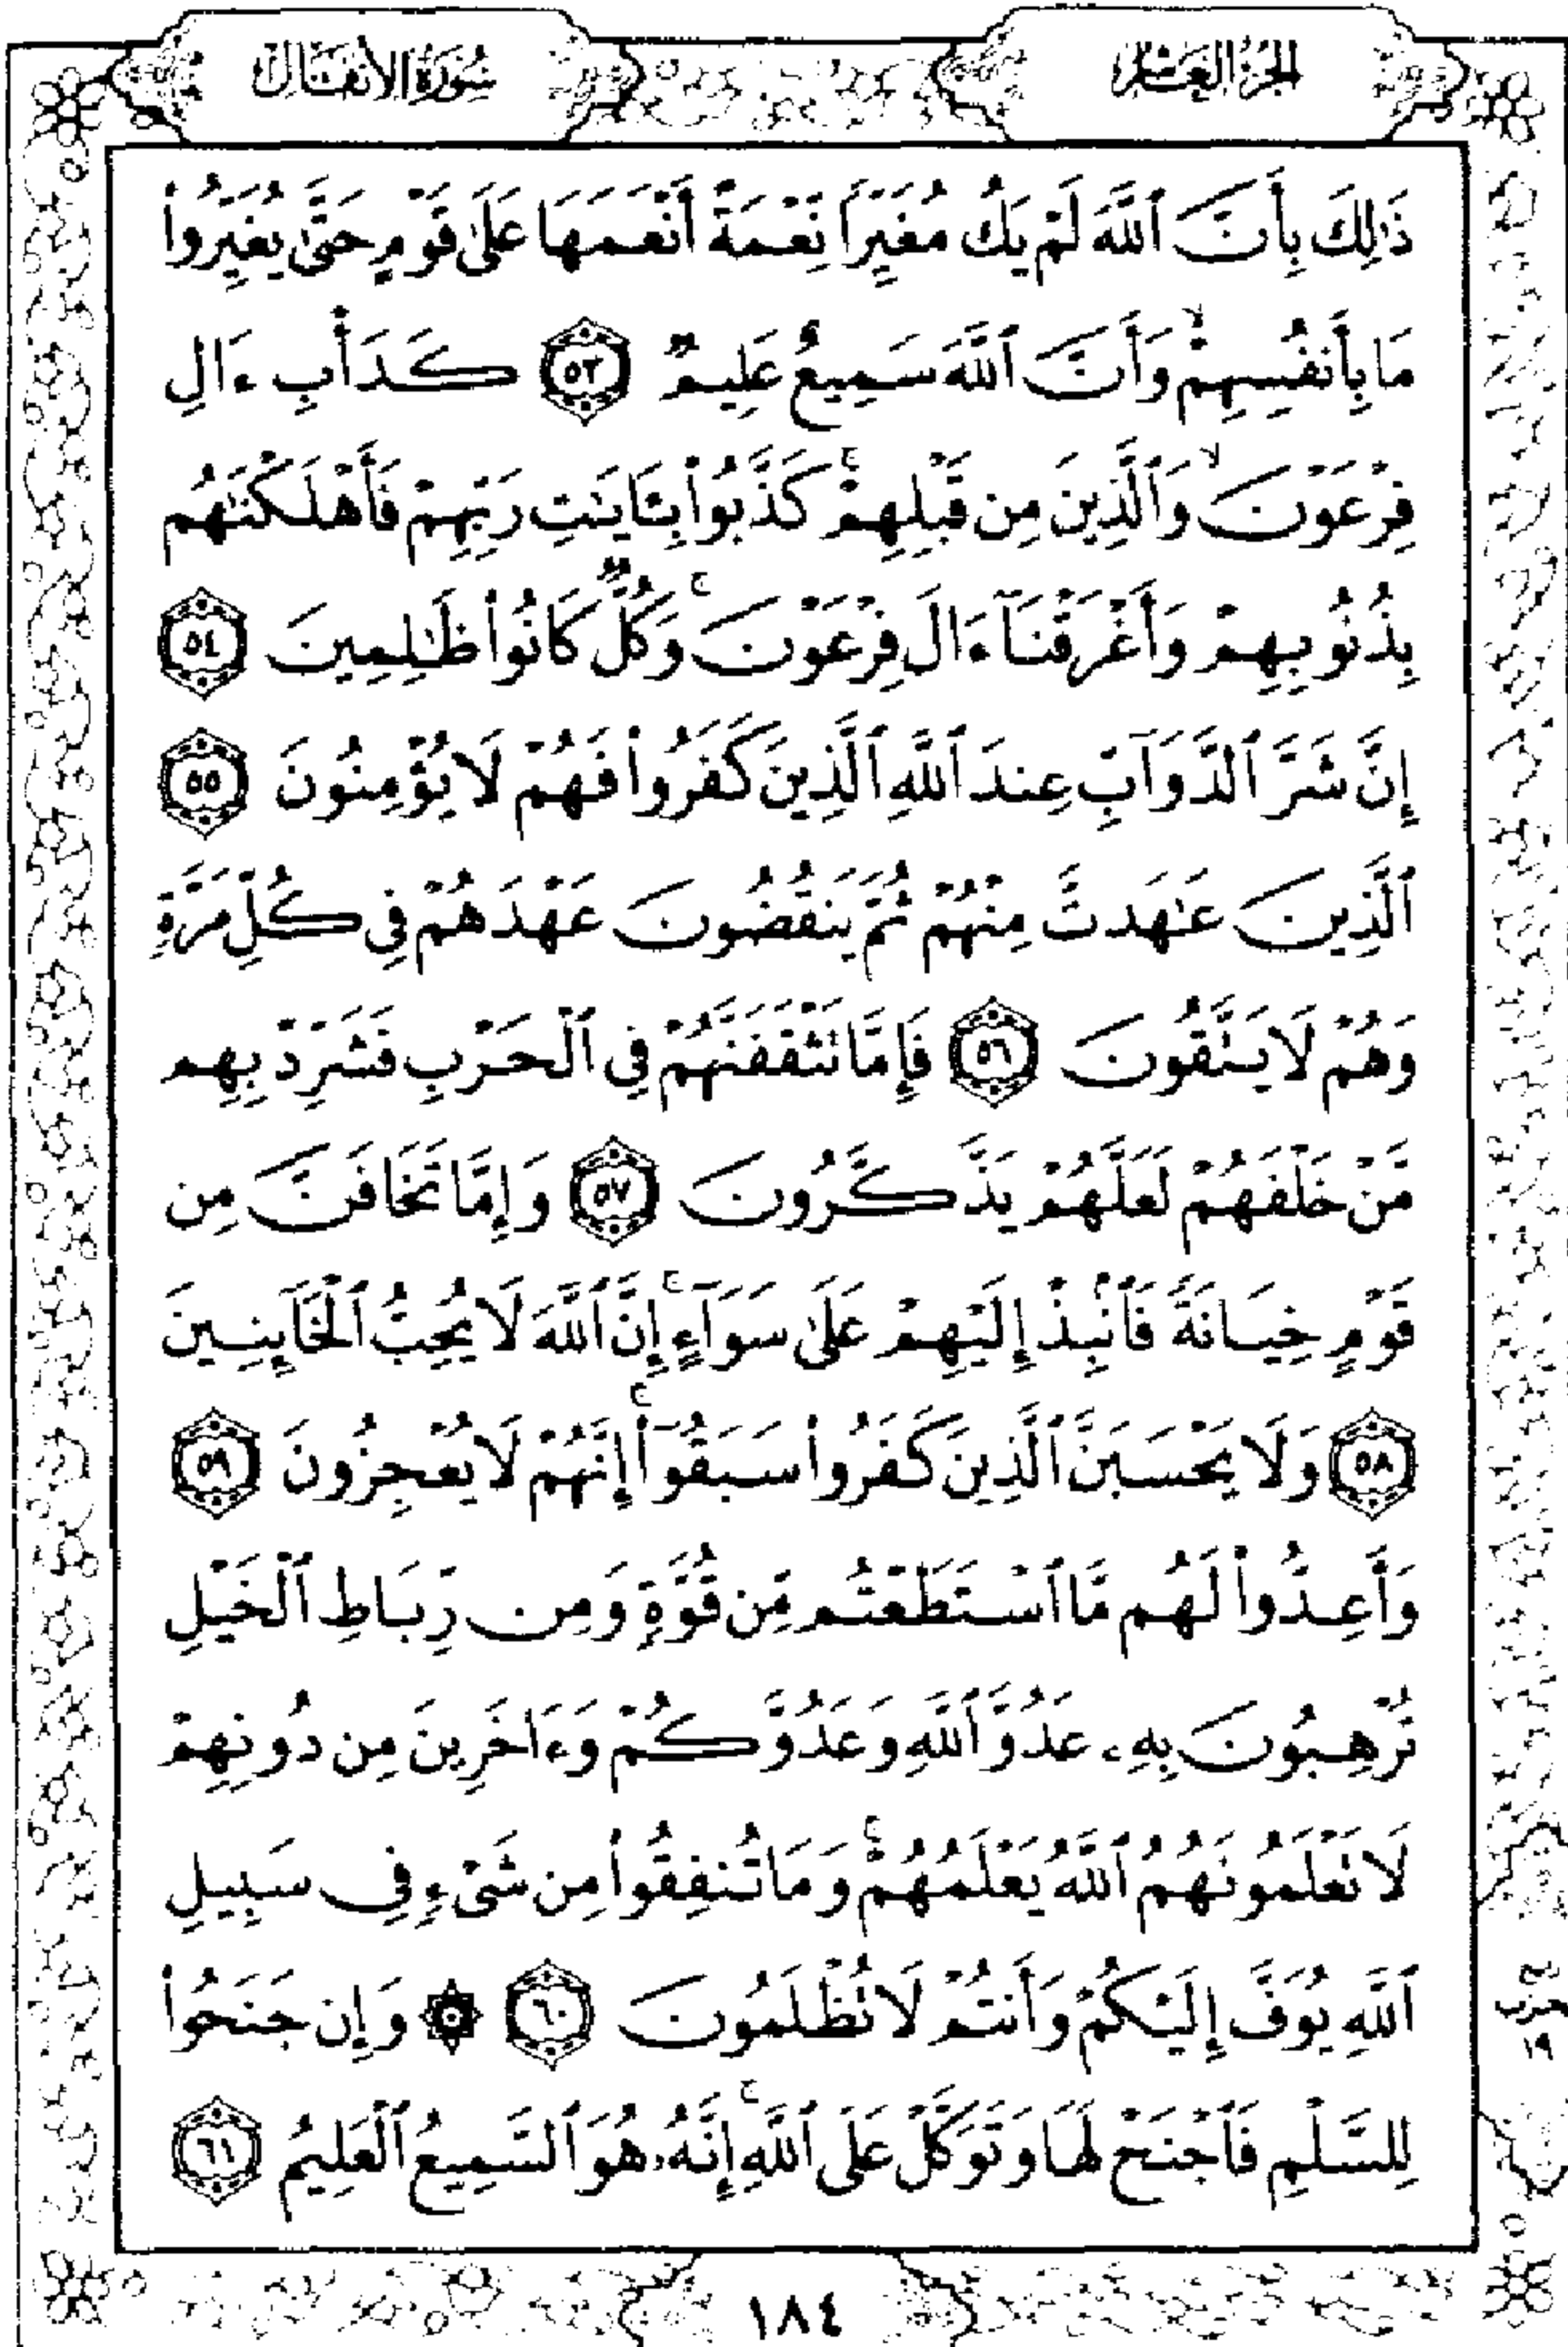 الجزء العاشر
سورة الأنفال
ذَٰلِكَ بِأَنَّ ٱللَّهَ لَمْ يَكُ مُغَيِّرًا نِّعْمَةً أَنْعَمَهَا عَلَىٰ قَوْمٍ حَتَّىٰ يُغَيِّرُوا۟
مَا بِأَنفُسِهِمْ ۙ وَأَنَّ ٱللَّهَ سَمِيعٌ عَلِيمٌ ٥٣ كَدَأْبِ ءَالِ
فِرْعَوْنَ ۙ وَٱلَّذِينَ مِن قَبْلِهِمْ ۚ كَذَّبُوا۟ بِـَٔايَـٰتِ رَبِّهِمْ فَأَهْلَكْنَـٰهُم
بِذُنُوبِهِمْ وَأَغْرَقْنَآ ءَالَ فِرْعَوْنَ ۚ وَكُلٌّ كَانُوا۟ ظَـٰلِمِينَ ٥٤
إِنَّ شَرَّ ٱلدَّوَآبِّ عِندَ ٱللَّهِ ٱلَّذِينَ كَفَرُوا۟ فَهُمْ لَا يُؤْمِنُونَ ٥٥
ٱلَّذِينَ عَـٰهَدتَّ مِنْهُمْ ثُمَّ يَنقُضُونَ عَهْدَهُمْ فِى كُلِّ مَرَّةٍ
وَهُمْ لَا يَتَّقُونَ ٥٦ فَإِمَّا تَثْقَفَنَّهُمْ فِى ٱلْحَرْبِ فَشَرِّدْ بِهِم
مَّنْ خَلْفَهُمْ لَعَلَّهُمْ يَذَّكَّرُونَ ٥٧ وَإِمَّا تَخَافَنَّ مِن
قَوْمٍ خِيَانَةً فَٱنۢبِذْ إِلَيْهِمْ عَلَىٰ سَوَآءٍ ۚ إِنَّ ٱللَّهَ لَا يُحِبُّ ٱلْخَآئِنِينَ
٥٨ وَلَا يَحْسَبَنَّ ٱلَّذِينَ كَفَرُوا۟ سَبَقُوٓا۟ ۚ إِنَّهُمْ لَا يُعْجِزُونَ ٥٩
وَأَعِدُّوا۟ لَهُم مَّا ٱسْتَطَعْتُم مِّن قُوَّةٍ وَمِن رِّبَاطِ ٱلْخَيْلِ
تُرْهِبُونَ بِهِۦ عَدُوَّ ٱللَّهِ وَعَدُوَّكُمْ وَءَاخَرِينَ مِن دُونِهِمْ
لَا تَعْلَمُونَهُمُ ٱللَّهُ يَعْلَمُهُمْ ۚ وَمَا تُنفِقُوا۟ مِن شَىْءٍ فِى سَبِيلِ
ٱللَّهِ يُوَفَّ إِلَيْكُمْ وَأَنتُمْ لَا تُظْلَمُونَ ٦٠ ۞ وَإِن جَنَحُوا۟
لِلسَّلْمِ فَٱجْنَحْ لَهَا وَتَوَكَّلْ عَلَى ٱللَّهِ ۚ إِنَّهُۥ هُوَ ٱلسَّمِيعُ ٱلْعَلِيمُ ٦١
حزب
١٩
١٨٤